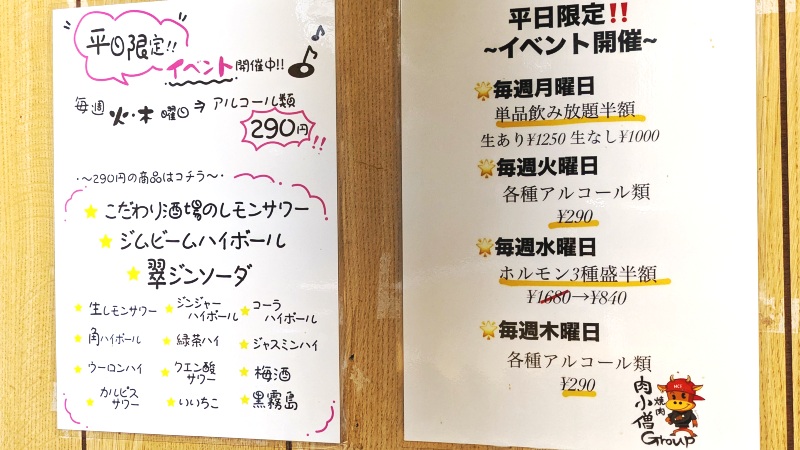 平日限定!!
イベント開催中!!
毎週 火・木 曜日⇒アルコール類
290円!!
・～290円の商品はコチラ～・
こだわり酒場のレモンサワー
ジムビームハイボール
翠ジンソーダ
生レモンサワー
ジンジャーハイボール
コーラハイボール
角ハイボール
緑茶ハイ
ジャスミンハイ
ウーロンハイ
クエン酸サワー
梅酒
カルピスサワー
いいちこ
黒霧島
平日限定!!
~イベント開催~
毎週月曜日
単品飲み放題半額
生あり¥1250 生なし¥1000
毎週火曜日
各種アルコール類
¥290
毎週水曜日
ホルモン3種盛半額
¥1680→¥840
毎週木曜日
各種アルコール類
¥290
焼肉
肉小僧
Group